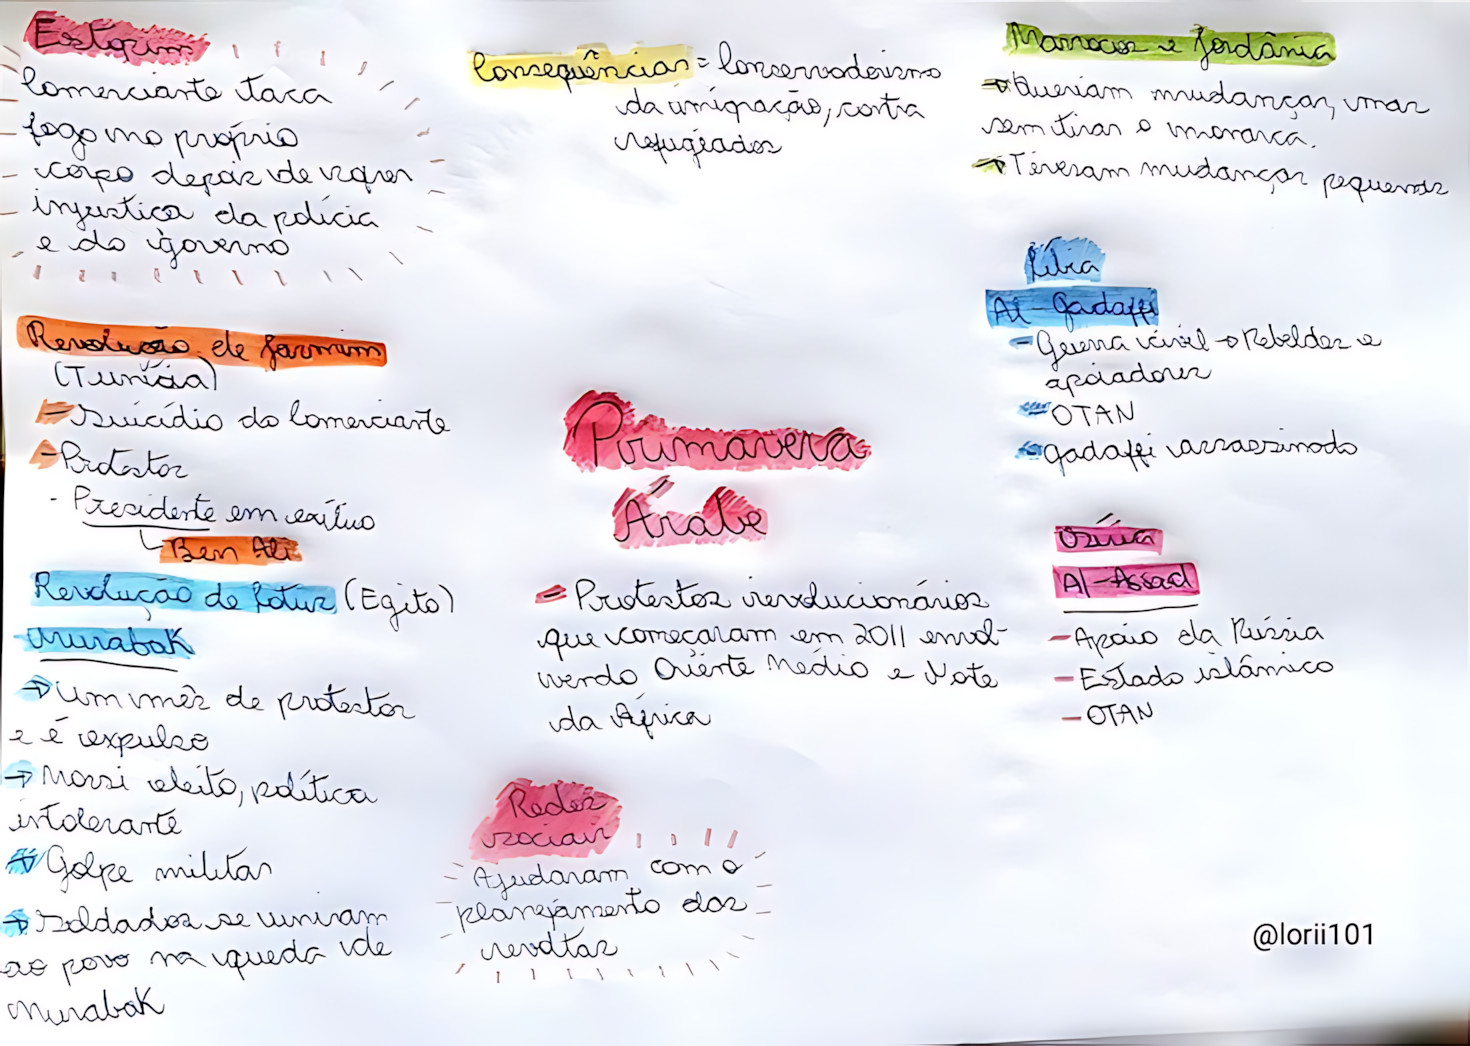 Estopim
Comerciante taca
fogo no próprio
corpo depois de viver
injustiça da polícia
e do governo
Revolução de Jasmim
(Tunísia)
- Suicídio do Comerciante
- Protestos
- Presidente em exílio
Ben Ali
Revolução de Lotus (Egito)
Murabak
→ Um mês de protestos
e é expulso
→ Morsi eleito, política
intolerante
→ Golpe militar
→ Soldados se uniram
ao povo na queda de
Murabak
Consequências = Conservadorismo
da imigração, contra
refugiados
Primavera
Árabe
- Protestos revolucionários
que começaram em 2011 envol-
vendo Oriente Médio e Norte
da África
Redes
sociais
Ajudaram com o
planejamento das
revoltas
Marrocos e Jordânia
→ Queriam mudanças, mas
sem tirar o monarca.
→ Tiveram mudanças pequenas
Líbia
Al-Gadaffi
- Guerra civil → Rebeldes e
apoiadores
- OTAN
- Gadaffi assassinado
Síria
Al-Assad
- Apoio da Rússia
- Estado islâmico
- OTAN
@lorii101